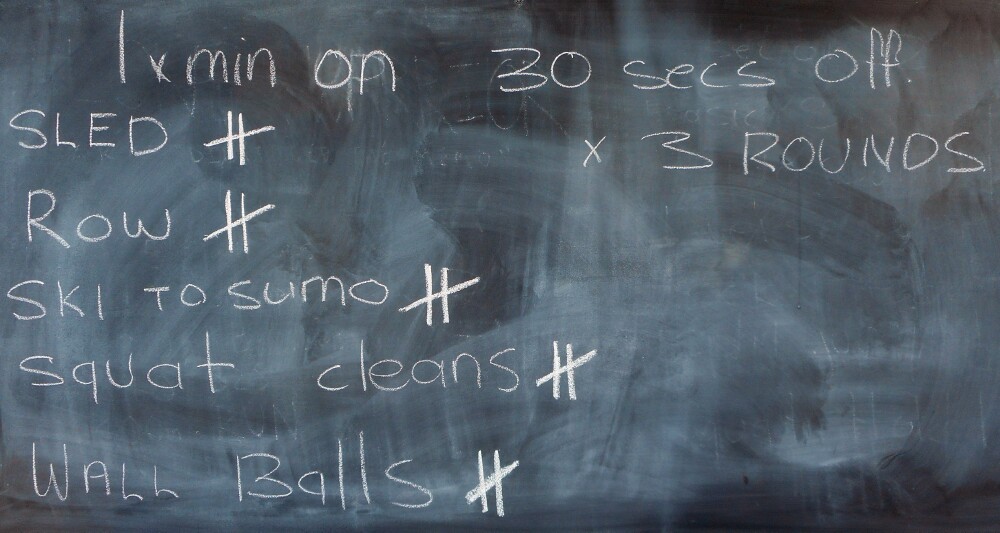 1 x min on 30 secs off.
SLED 卌
x 3 ROUNDS.
Row 卌
SKI TO sumo 卌
squat cleans 卌
WALL Balls 卌